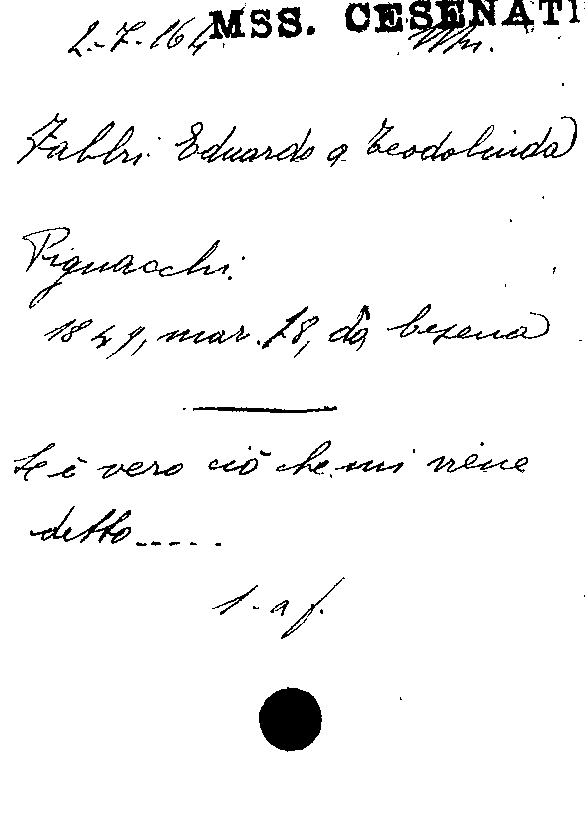 MSS. CESENATI
2-7-164 Ms.
Fabbri Eduardo a Teodolinda
Pignocchi.
1849, mar. 18, da Cesena
Se è vero ciò che mi viene
detto.....
l. a f.